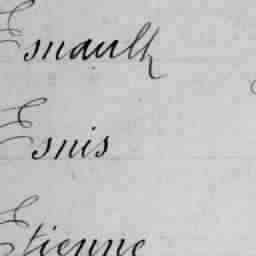 Esnault
Esnis
Etienne